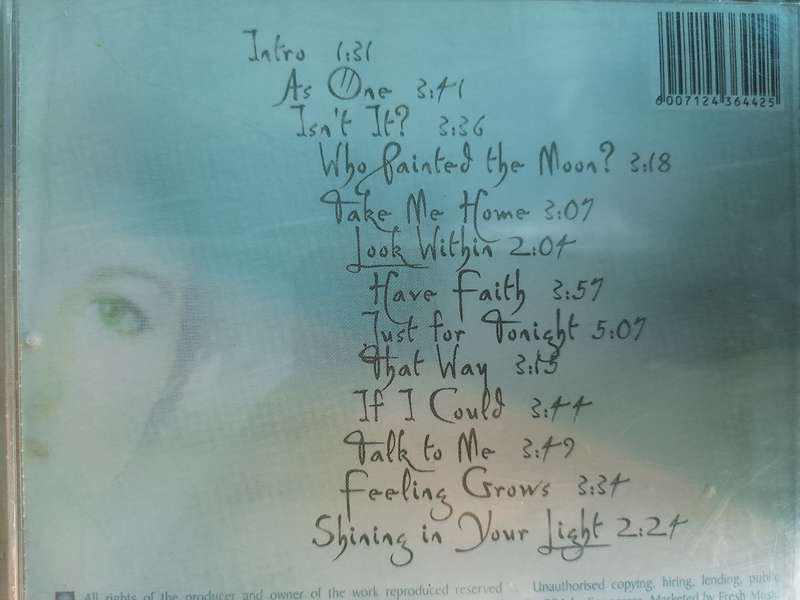 Intro 1:31
As One 3:41
Isn't It? 3:36
Who Painted the Moon? 3:18
Take Me Home 3:07
Look Within 2:04
Have Faith 3:57
Just for Tonight 5:07
That Way 3:15
If I Could 3:44
Talk to Me 3:49
Feeling Grows 3:34
Shining in Your Light 2:24
6007124 364425
All rights of the producer and owner of the work reproduced reserved
Unauthorised copying, hiring, lending, public
Marketed by Fresh Music